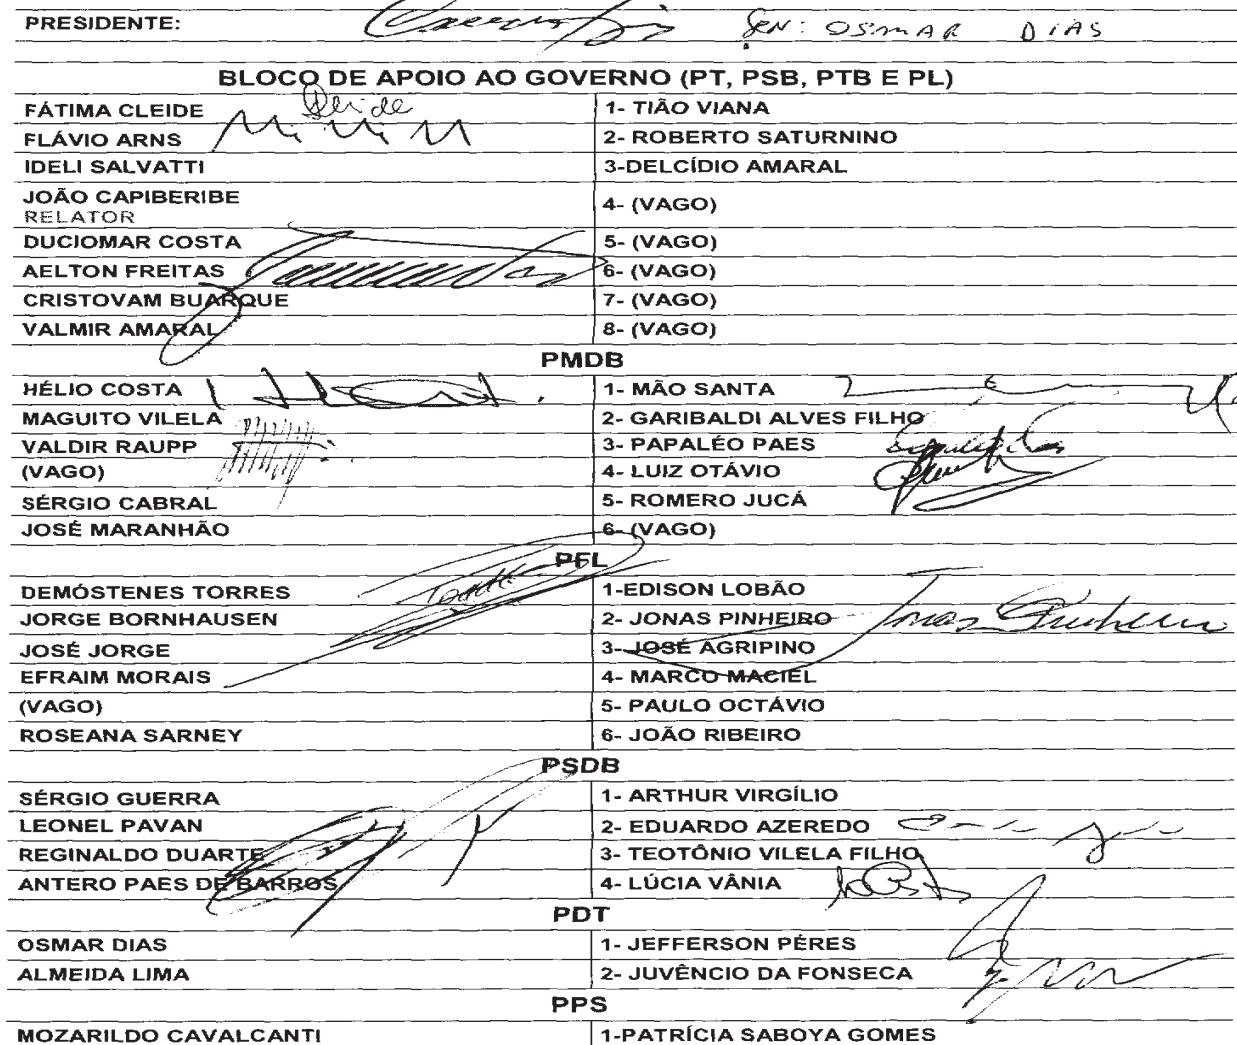 PRESIDENTE: SEN: OSMAR DIAS
BLOCO DE APOIO AO GOVERNO (PT, PSB, PTB E PL)
FÁTIMA CLEIDE Cleide 1- TIÃO VIANA
FLÁVIO ARNS 2- ROBERTO SATURNINO
IDELI SALVATTI 3-DELCÍDIO AMARAL
JOÃO CAPIBERIBE
RELATOR 4- (VAGO)
DUCIOMAR COSTA 5- (VAGO)
AELTON FREITAS 6- (VAGO)
CRISTOVAM BUARQUE 7- (VAGO)
VALMIR AMARAL 8- (VAGO)
PMDB
HÉLIO COSTA 1- MÃO SANTA
MAGUITO VILELA 2- GARIBALDI ALVES FILHO
VALDIR RAUPP 3- PAPALÉO PAES
(VAGO) 4- LUIZ OTÁVIO
SÉRGIO CABRAL 5- ROMERO JUCÁ
JOSÉ MARANHÃO 6- (VAGO)
PFL
DEMÓSTENES TORRES 1-EDISON LOBÃO
JORGE BORNHAUSEN 2- JONAS PINHEIRO Jonas Pinheiro
JOSÉ JORGE 3- JOSÉ AGRIPINO
EFRAIM MORAIS 4- MARCO MACIEL
(VAGO) 5- PAULO OCTÁVIO
ROSEANA SARNEY 6- JOÃO RIBEIRO
PSDB
SÉRGIO GUERRA 1- ARTHUR VIRGÍLIO
LEONEL PAVAN 2- EDUARDO AZEREDO
REGINALDO DUARTE 3- TEOTÔNIO VILELA FILHO
ANTERO PAES DE BARROS 4- LÚCIA VÂNIA
PDT
OSMAR DIAS 1- JEFFERSON PÉRES
ALMEIDA LIMA 2- JUVÊNCIO DA FONSECA
PPS
MOZARILDO CAVALCANTI 1-PATRÍCIA SABOYA GOMES